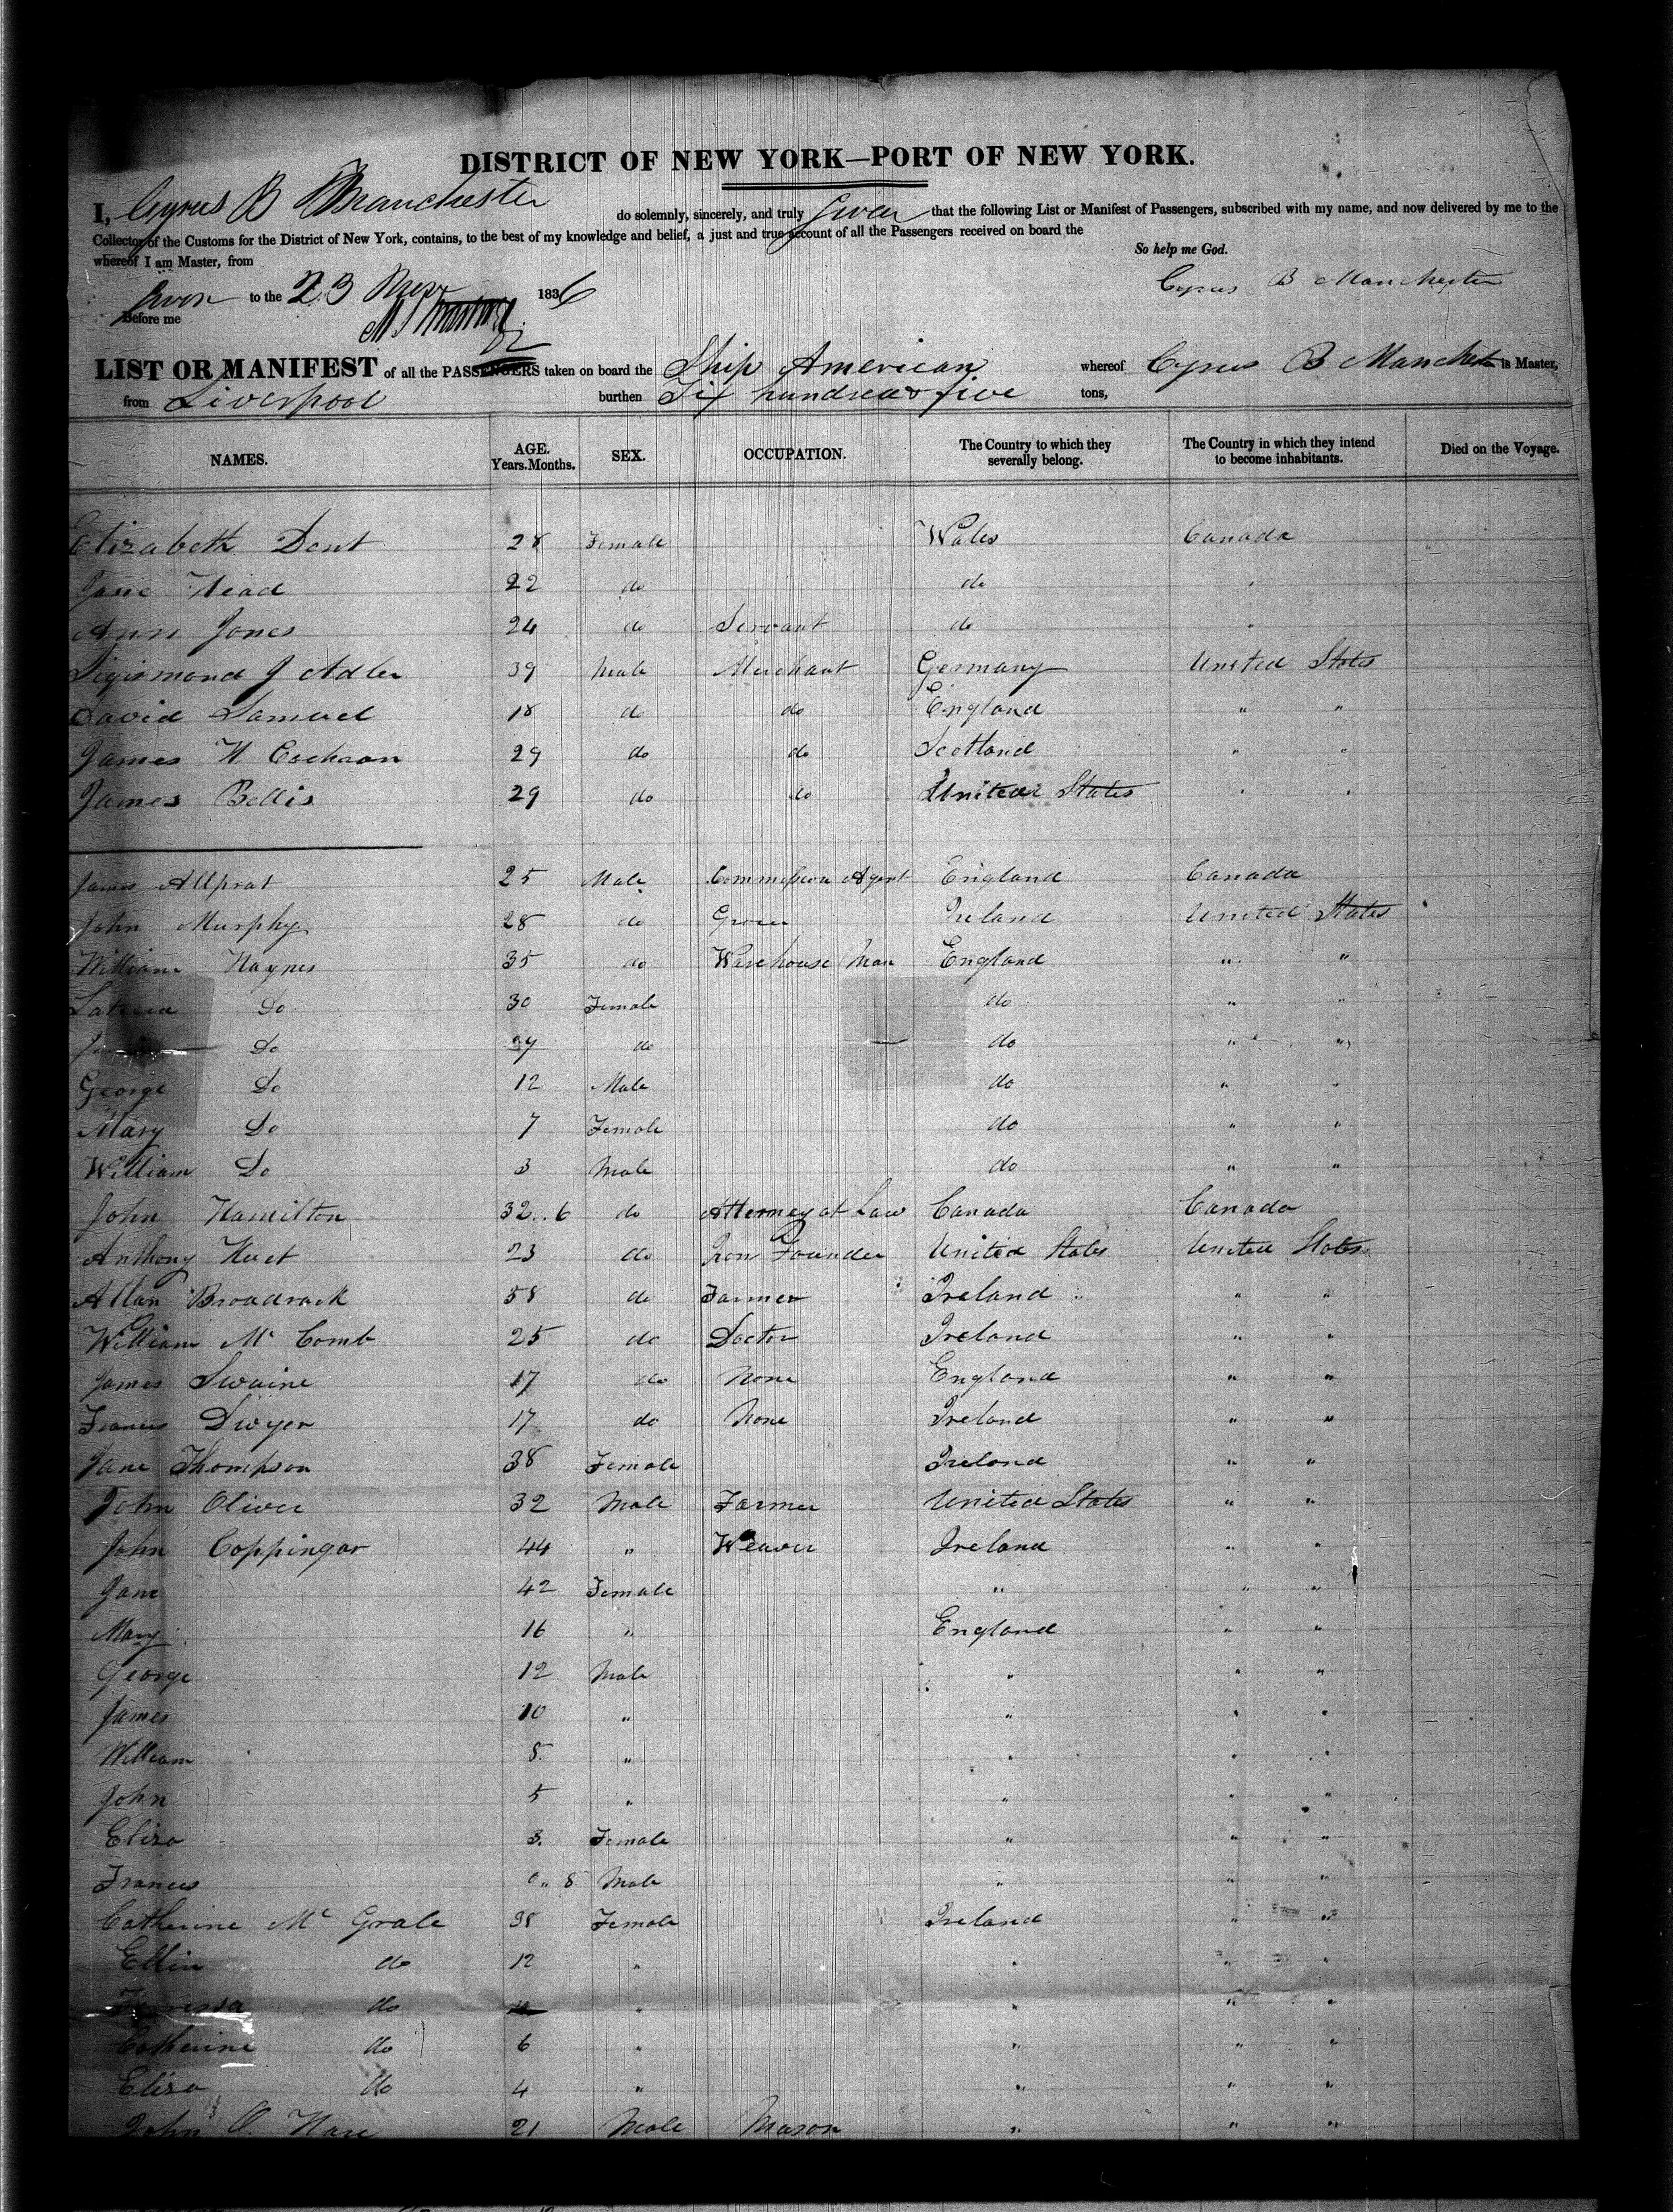 DISTRICT OF NEW YORK—PORT OF NEW YORK.
I, Cyrus B Manchester do solemnly, sincerely, and truly swear that the following List or Manifest of Passengers, subscribed with my name, and now delivered by me to the
Collector of the Customs for the District of New York, contains, to the best of my knowledge and belief, a just and true account of all the Passengers received on board the
whereof I am Master, from So help me God.
Sworn to the 23 1836 Cyrus B Manchester
Before me
LIST OR MANIFEST of all the PASSENGERS taken on board the Ship American whereof Cyrus B Manchester is Master,
from Liverpool burthen Six hundred & five tons,
NAMES. AGE. Years. Months. SEX. OCCUPATION. The Country to which they severally belong. The Country in which they intend to become inhabitants. Died on the Voyage.
Elizabeth Dent 28 Female Wales Canada
Jane Head 22 do do "
Ann Jones 24 do Servant do "
Sigismond J Adler 39 Male Merchant Germany United States
David Samuel 18 do do England " "
James W Cochran 29 do do Scotland " "
James Bettis 29 do do United States " "
James Allprat 25 Male Commission Agent England Canada
John Murphy 28 do Grocer Ireland United States
William Haynes 35 do Warehouse Man England " "
Do 30 Female do " "
Do do do " "
George Do 12 Male do " "
Mary Do 7 Female do " "
William Do 3 Male do " "
John Hamilton 32..6 do Attorney at Law Canada Canada
Anthony 23 do Iron Founder United States United States
Allan Broadrack 58 do Farmer Ireland " "
William Mc Comb 25 do Doctor Ireland " "
James Swaine 17 do None England " "
Francis Dwyer 17 do None Ireland " "
Jane Thompson 38 Female Ireland " "
John Oliver 32 Male Farmer United States " "
John Coppingar 44 " Weaver Ireland " "
Jane 42 Female " " "
Mary 16 " England " "
George 12 Male " " "
James 10 " " " "
William 8 " " " "
John 5 " " " "
Eliza 3. Female " " "
Frances 0.. 8 Male " " "
Catherine Mc Grale 38 Female Ireland " "
Ellin do 12 " " " "
do " " " "
Catherine do 6 " " " "
Eliza do 4 " " " "
John O. Hare 21 Male Mason " " "